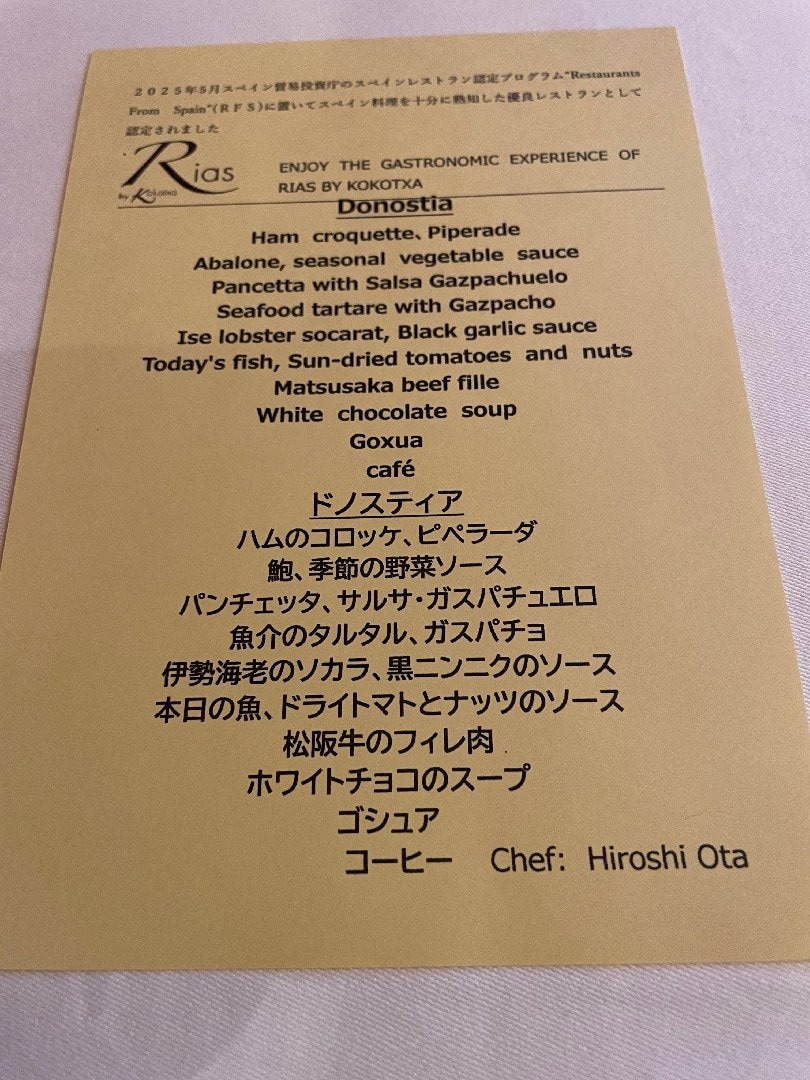 2025年5月スペイン貿易投資庁のスペインレストラン認定プログラム"Restaurants
From Spain"(RFS)に置いてスペイン料理を十分に熟知した優良レストランとして
認定されました
Rias
by Kokotxa
ENJOY THE GASTRONOMIC EXPERIENCE OF
RIAS BY KOKOTXA
Donostia
Ham croquette、Piperade
Abalone, seasonal vegetable sauce
Pancetta with Salsa Gazpachuelo
Seafood tartare with Gazpacho
Ise lobster socarat, Black garlic sauce
Today's fish, Sun-dried tomatoes and nuts
Matsusaka beef fille
White chocolate soup
Goxua
café
ドノスティア
ハムのコロッケ、ピペラーダ
鮑、季節の野菜ソース
パンチェッタ、サルサ・ガスパチュエロ
魚介のタルタル、ガスパチョ
伊勢海老のソカラ、黒ニンニクのソース
本日の魚、ドライトマトとナッツのソース
松阪牛のフィレ肉
ホワイトチョコのスープ
ゴシュア
コーヒー Chef: Hiroshi Ota